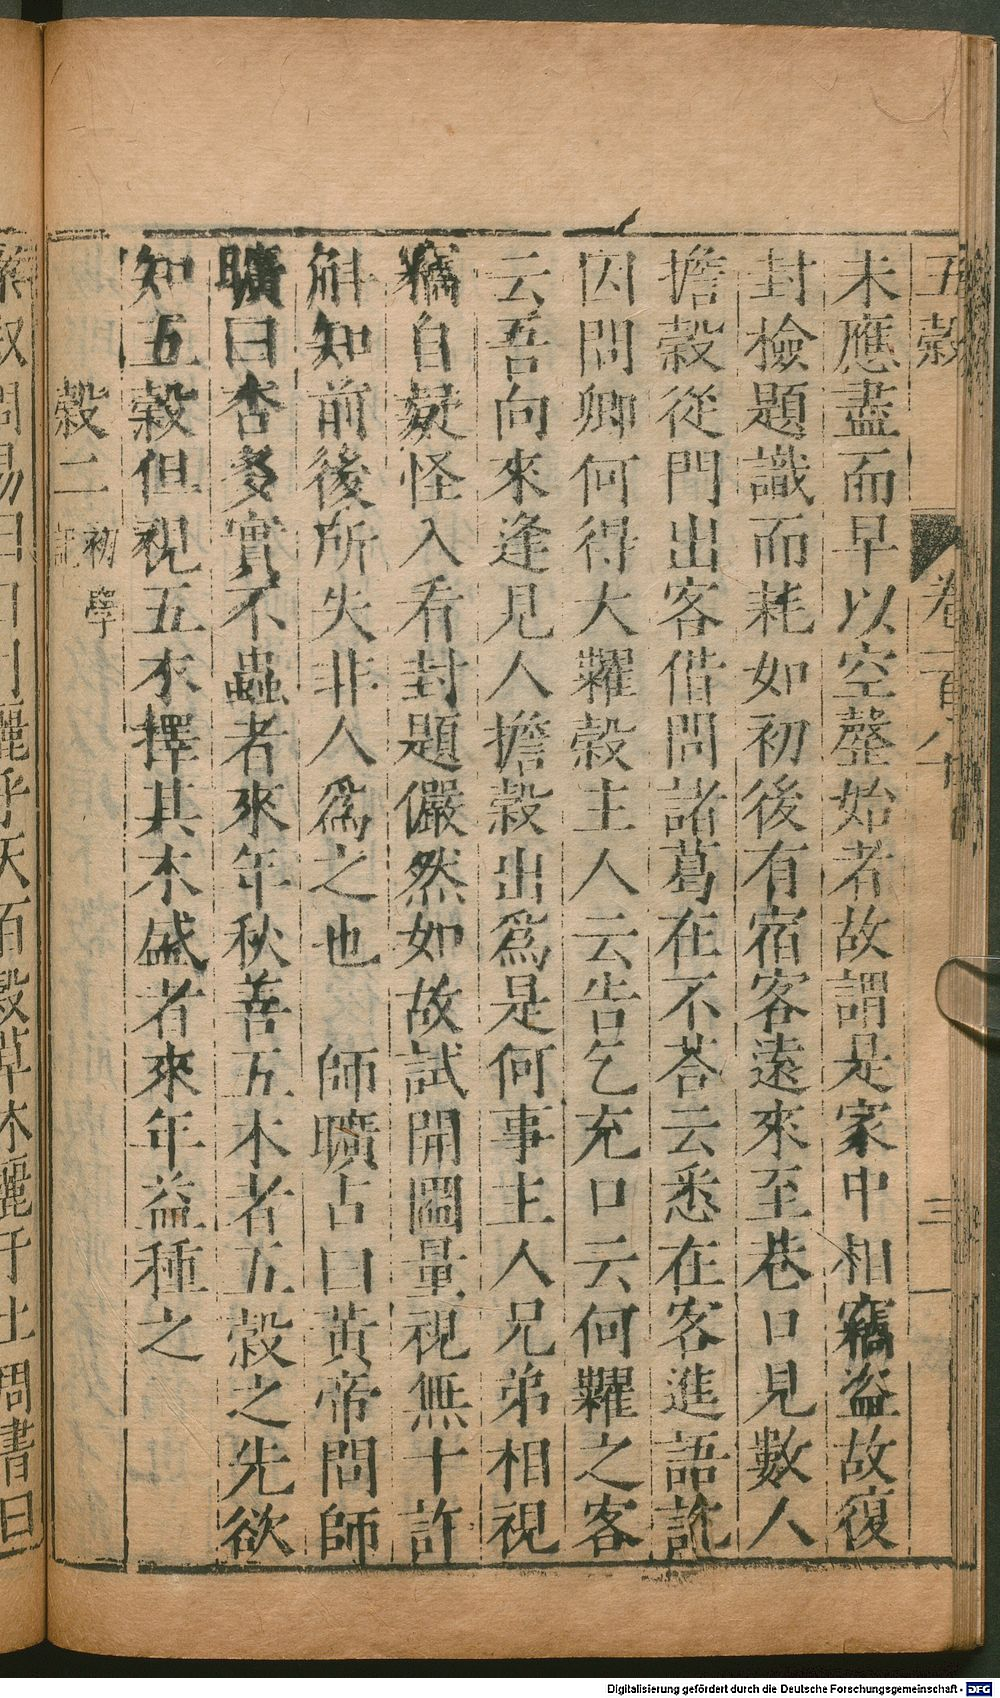 五穀
卷一百八十
三
未應盡而早以空罄始者故謂是家中相竊盜故復
封檢題識而耗如初後有宿客遠來至巷口見數人
擔穀從門出客借問諸葛在不荅云悉在客進語訖
因問卿何得大糶穀主人云告乞充口云何糶之客
云吾向來逢見人擔穀出爲是何事主人兄弟相視
竊自疑怪入看封題儼然如故試開圌量視無十許
斛知前後所失非人爲之也　師曠占曰黃帝問師
曠曰杏多實不蟲者來年秋善五木者五穀之先欲
知五穀但視五木擇其木盛者來年益種之
穀二 初學記
問易曰日月麗乎天百穀草木麗乎土周書曰
Digitalisierung gefördert durch die Deutsche Forschungsgemeinschaft - DFG